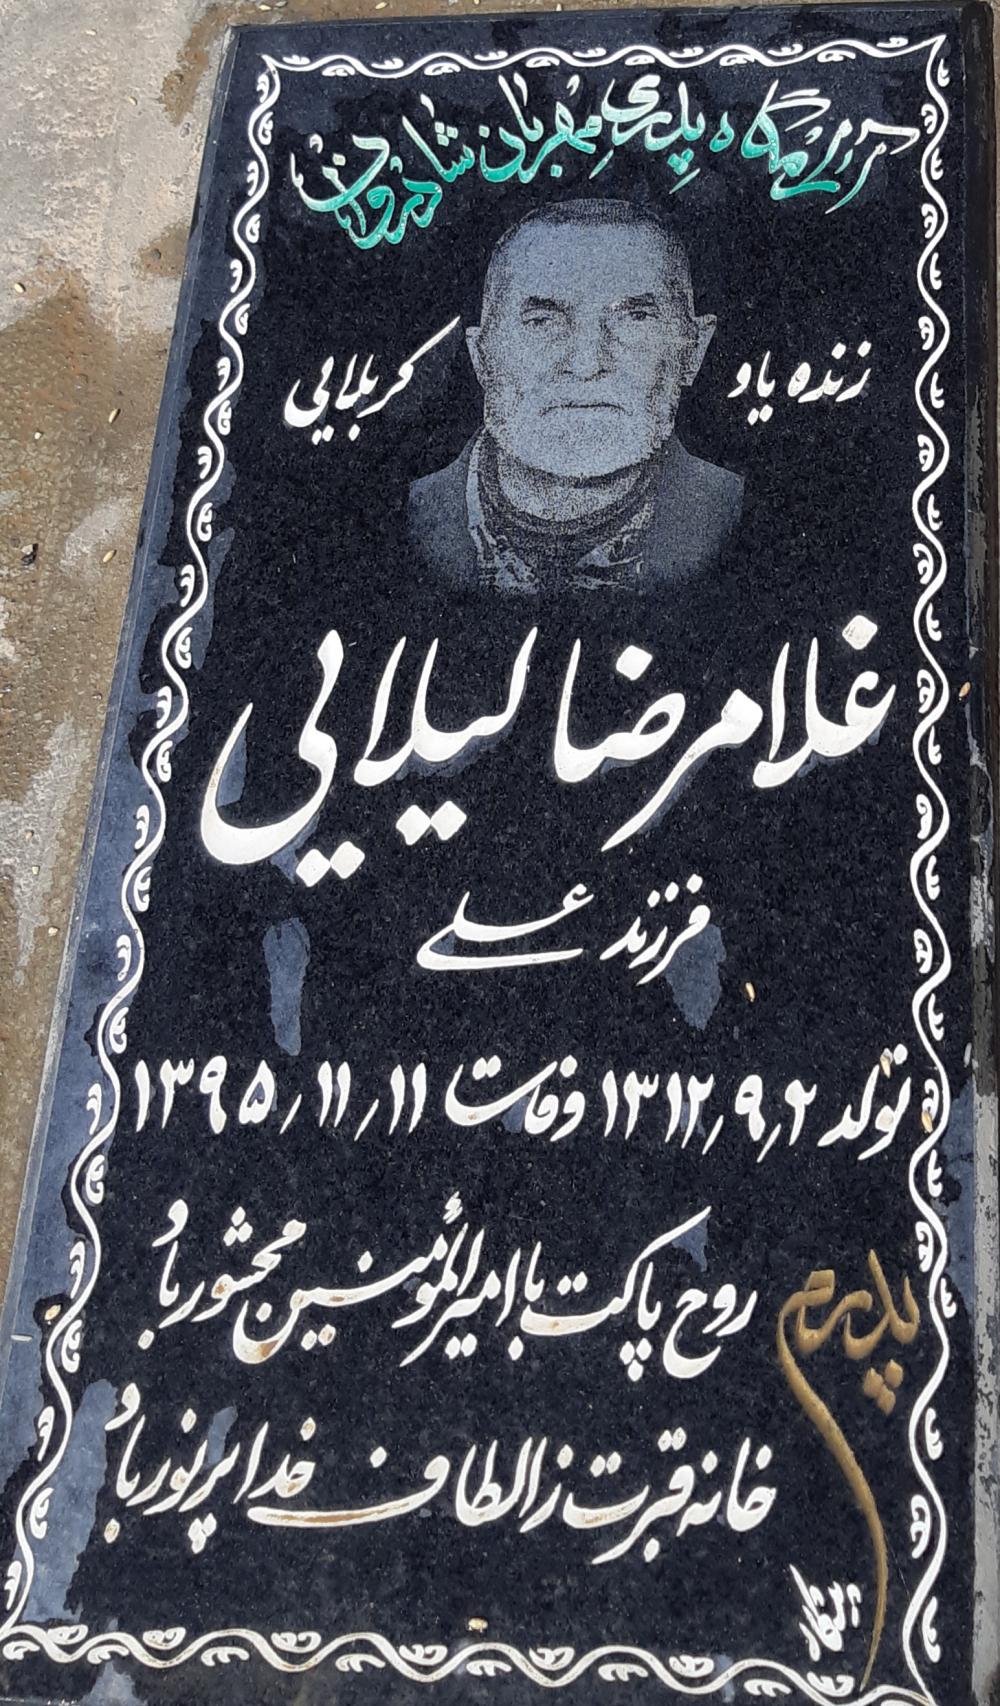 آرامگاه پدری مهربان شادروان
زنده یاد کربلایی
غلامرضا لیلایی
فرزند علی
تولد ۱۳۱۲٫۹٫۲ وفات ۱۳۹۵٫۱۱٫۱۱
پدرم
روح پاکت با امیرالمؤمنین محشور باد
خانه قبرت ز الطاف خدا پر نور باد